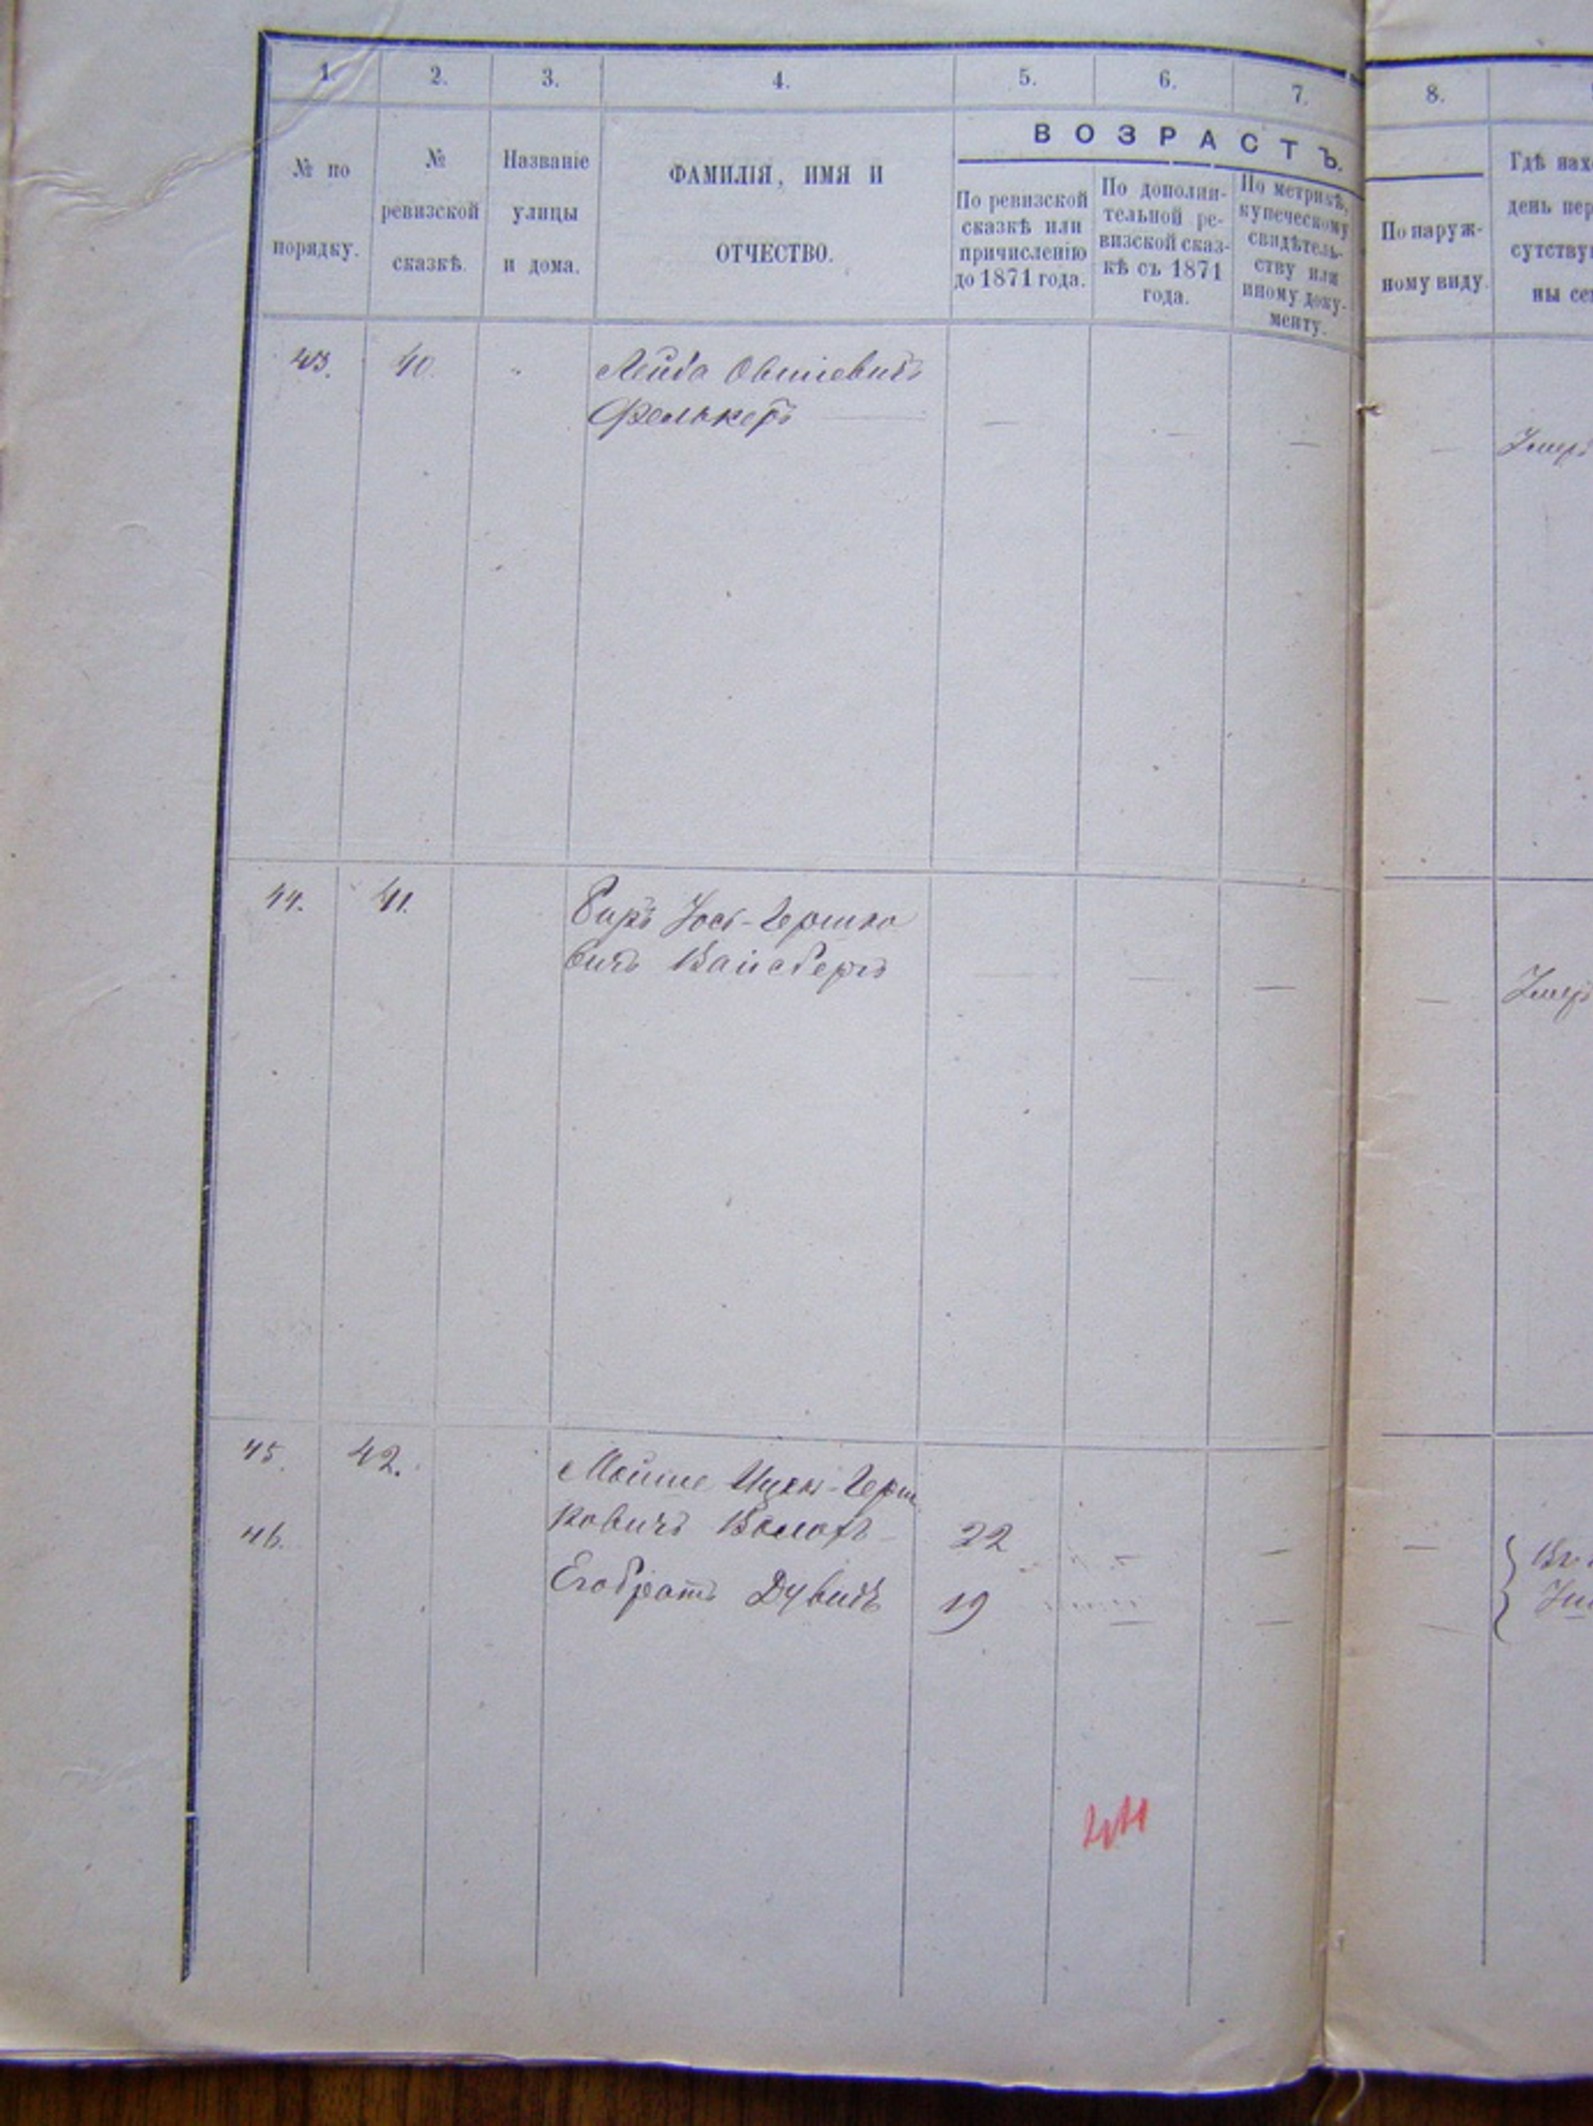 1. 2. 3. 4. 5. 6. 7. 8.
ВОЗРАСТЪ.
№ по
порядку.
№
ревизской
сказкѣ.
Названіе
улицы
и дома.
ФАМИЛІЯ, ИМЯ И
ОТЧЕСТВО.
По ревизской
сказкѣ или
причисленію
до 1871 года.
По дополни-
тельной ре-
визской сказ-
кѣ съ 1871
года.
По метрикѣ,
купеческому
свидѣтель-
ству или
иному доку-
менту.
По наруж-
ному виду.
Гдѣ нах
день пер
сутству
ны се
43. 40. Лейба Овшіевичъ
Фелькеръ — — — — Умеръ
44. 41. Беръ Іось-Гершко
вичъ Вайсбергъ — — — — Умеръ
45. 42. Мойше Ицек-Герш
46. ковичъ Волохъ 22 — —
Его братъ Дувидъ 19 — — —